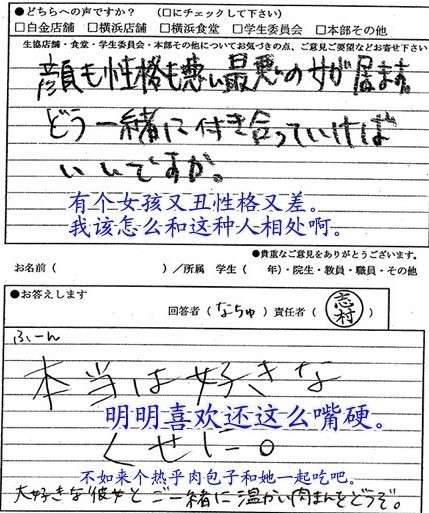 ●どちらへの声ですか? (□にチェックして下さい)
□白金店舗 □横浜店舗 □横浜食堂 □学生委員会 □本部その他
生協店舗・食堂・学生委員会・本部その他についてお気づきの点、ご意見ご要望などお寄せ下さい
顔も性格も悪い最悪の女が居ます。
どう一緒に付き合っていけば
いいですか。
有个女孩又丑性格又差。
我该怎么和这种人相处啊。
●貴重なご意見をありがとうございます。
お名前( )/所属 学生( 年)・院生・教員・職員・その他
●お答えします
回答者(なちゅ)責任者(志村)
ふーん
本当は好きな
明明喜欢还这么嘴硬。
くせに。
不如来个热乎肉包子和她一起吃吧。
大好きな彼女とご一緒に温かい肉まんをどうぞ。